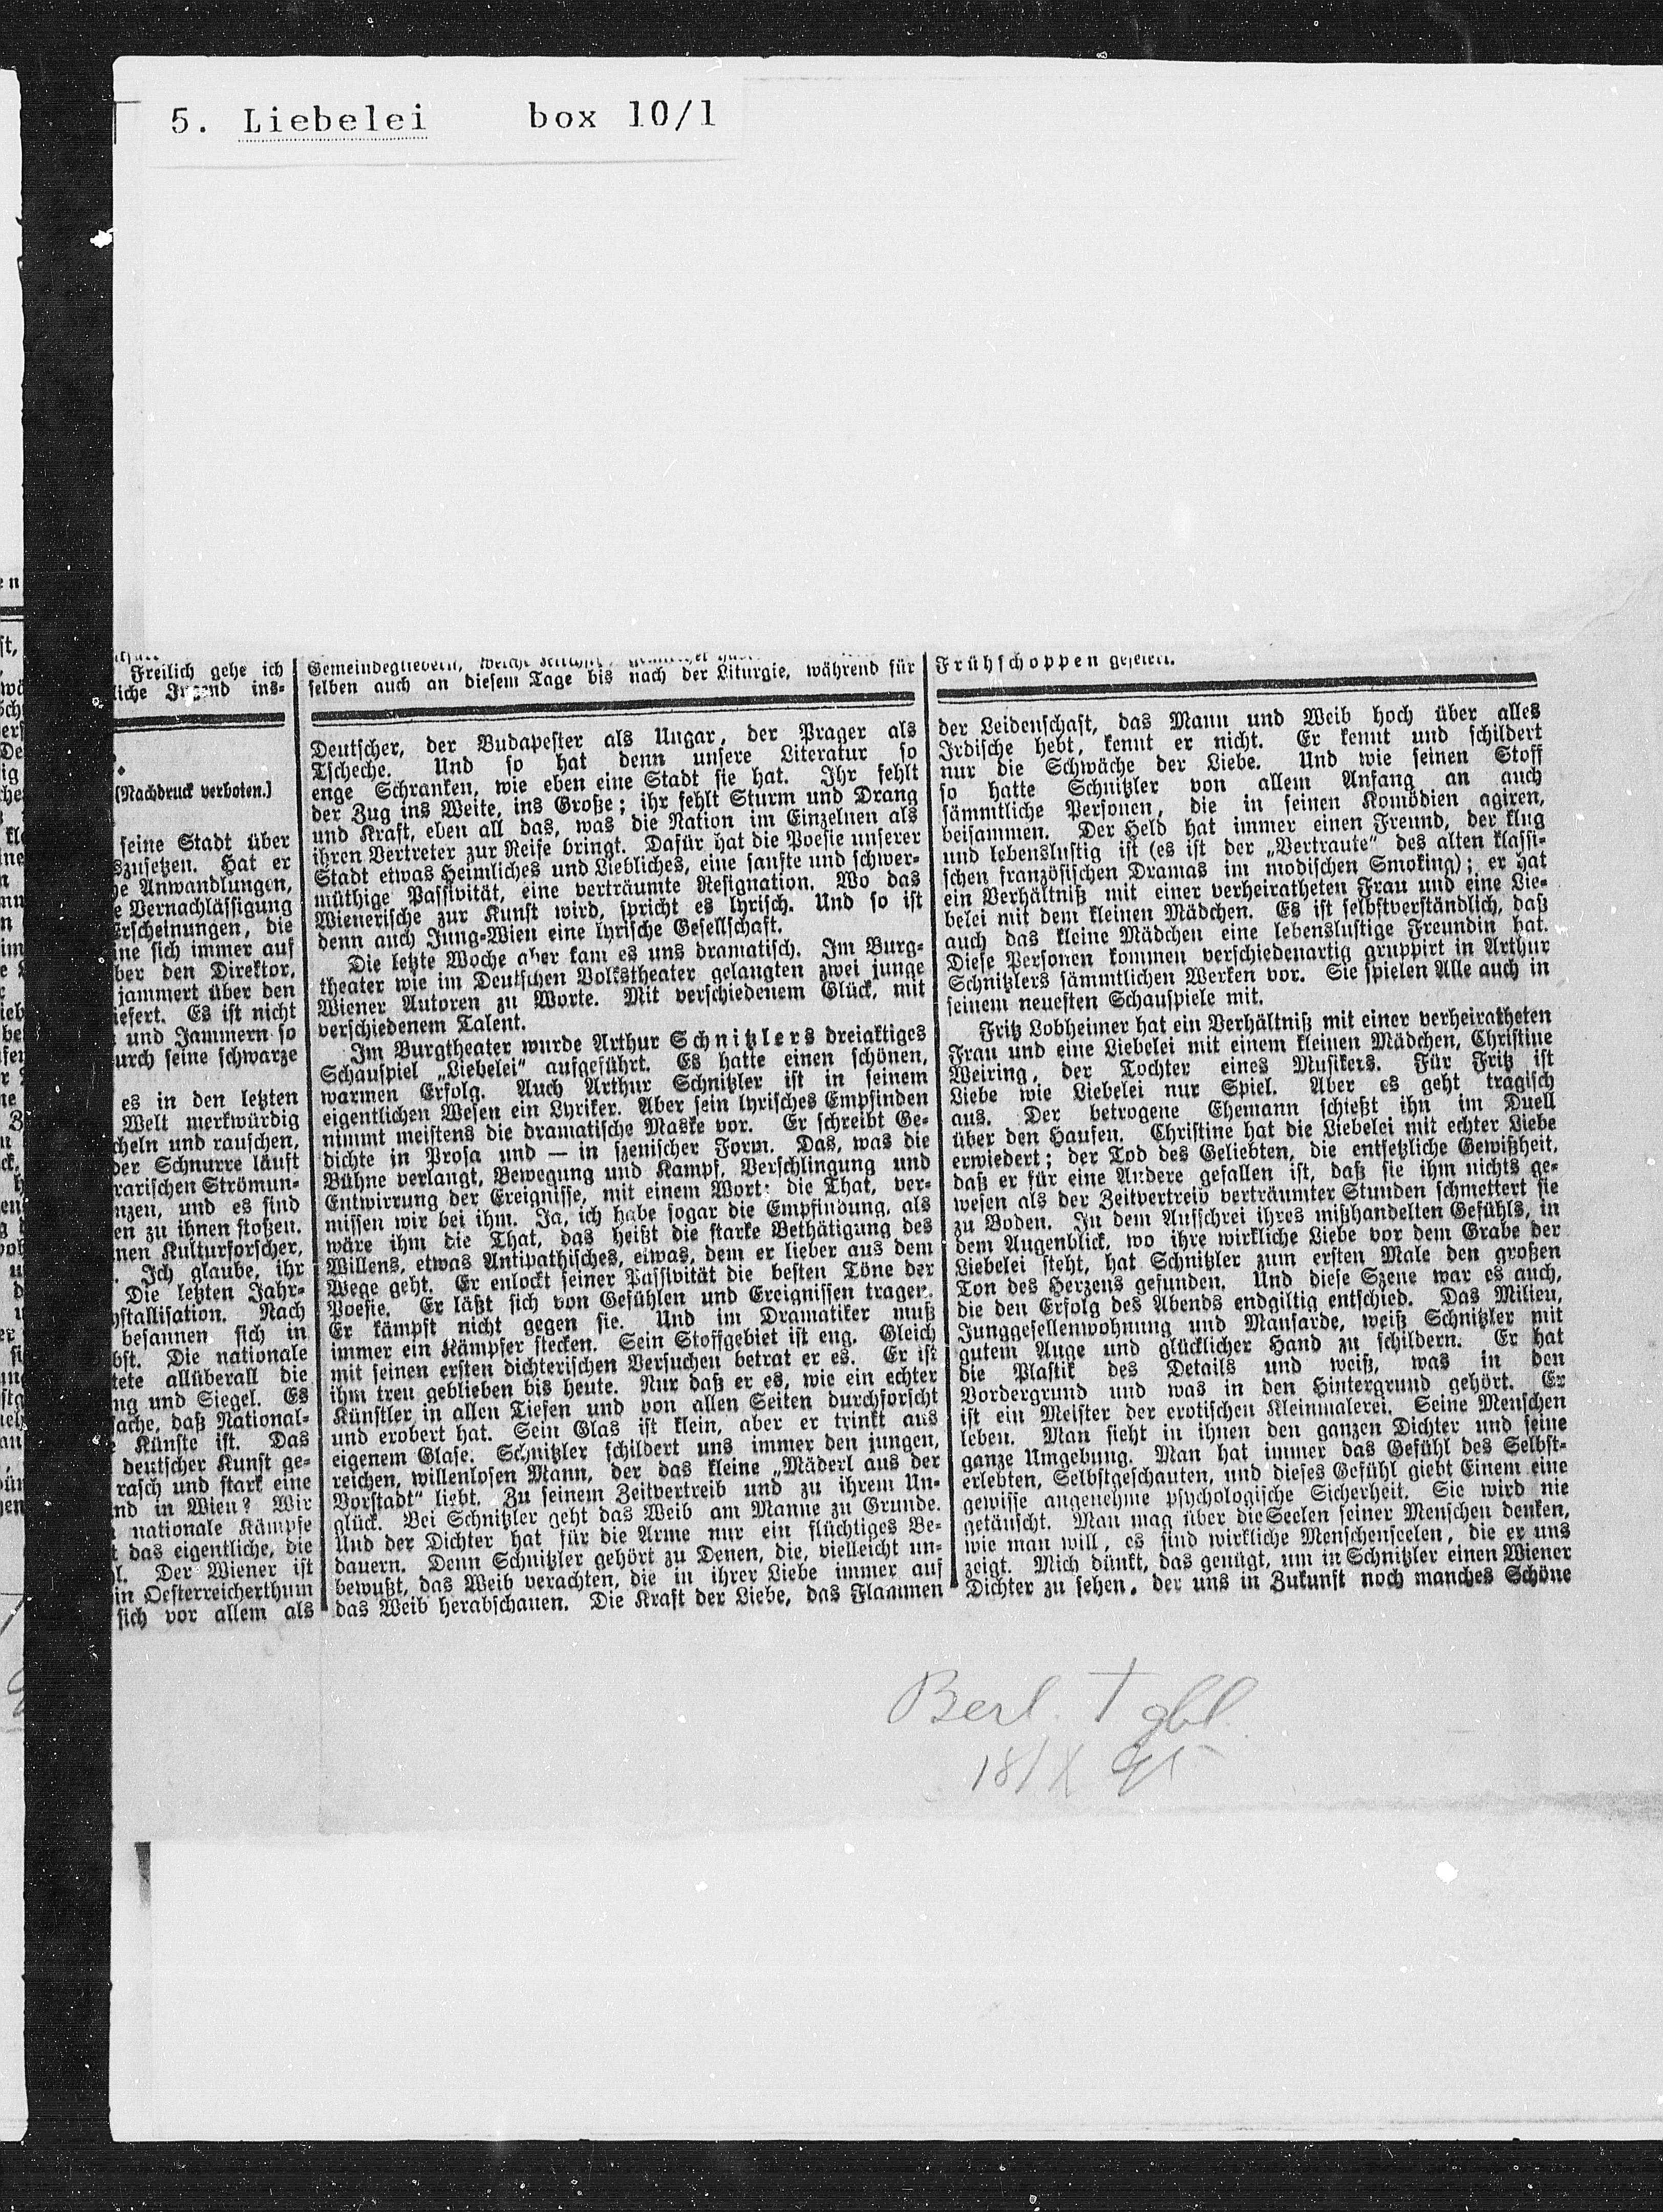 5. Liebelei box 10/1
en
Freilich gehe ich
liche Jugend ins-
[Nachdruck verboten.]
seine Stadt über
szusetzen. Hat er
he Anwandlungen,
e Vernachlässigung
Erscheinungen, die
ine sich immer auf
ber den Direktor,
jammert über den
iefert. Es ist nicht
und Jammern so
urch seine schwarze
es in den letzten
Welt merkwürdig
cheln und rauschen,
der Schnurre läuft
rarischen Strömun-
nzen, und es sind
en zu ihnen stoßen.
nen Kulturforscher,
. Ich glaube, ihr
Die letzten Jahr-
ystallisation. Nach
besannen sich in
bst. Die nationale
tete allüberall die
ng und Siegel. Es
ache, daß National-
e Künste ist. Das
deutscher Kunst ge-
rasch und stark eine
nd in Wien? Wir
nationale Kämpfe
t das eigentliche, die
l. Der Wiener ist
in Oesterreicherthum
sich vor allem als
Gemeindegliedern,
selben auch an diesem Tage bis nach der Liturgie, während für
Deutscher, der Budapester als Ungar, der Prager als
Tscheche. Und so hat denn unsere Literatur so
enge Schranken, wie eben eine Stadt sie hat. Ihr fehlt
der Zug ins Weite, ins Große; ihr fehlt Sturm und Drang
und Kraft, eben all das, was die Nation im Einzelnen als
ihren Vertreter zur Reife bringt. Dafür hat die Poesie unserer
Stadt etwas Heimliches und Liebliches, eine sanfte und schwer-
müthige Passivität, eine verträumte Resignation. Wo das
Wienerische zur Kunst wird, spricht es lyrisch. Und so ist
denn auch Jung-Wien eine lyrische Gesellschaft.
Die letzte Woche aber kam es uns dramatisch. Im Burg-
theater wie im Deutschen Volkstheater gelangten zwei junge
Wiener Autoren zu Worte. Mit verschiedenem Glück, mit
verschiedenem Talent.
Im Burgtheater wurde Arthur Schnitzlers dreiaktiges
Schauspiel „Liebelei“ aufgeführt. Es hatte einen schönen,
warmen Erfolg. Auch Arthur Schnitzler ist in seinem
eigentlichen Wesen ein Lyriker. Aber sein lyrisches Empfinden
nimmt meistens die dramatische Maske vor. Er schreibt Ge-
dichte in Prosa und — in szenischer Form. Das, was die
Bühne verlangt, Bewegung und Kampf, Verschlingung und
Entwirrung der Ereignisse, mit einem Wort: die That, ver-
missen wir bei ihm. Ja, ich habe sogar die Empfindung, als
wäre ihm die That, das heißt die starke Bethätigung des
Willens, etwas Antipathisches, etwas, dem er lieber aus dem
Wege geht. Er enlockt seiner Passivität die besten Töne der
Poesie. Er läßt sich von Gefühlen und Ereignissen tragen.
Er kämpft nicht gegen sie. Und im Dramatiker muß
immer ein Kämpfer stecken. Sein Stoffgebiet ist eng. Gleich
mit seinen ersten dichterischen Versuchen betrat er es. Er ist
ihm treu geblieben bis heute. Nur daß er es, wie ein echter
Künstler, in allen Tiefen und von allen Seiten durchforscht
und erobert hat. Sein Glas ist klein, aber er trinkt aus
eigenem Glase. Schnitzler schildert uns immer den jungen,
reichen, willenlosen Mann, der das kleine „Mäderl aus der
Vorstadt“ liebt. Zu seinem Zeitvertreib und zu ihrem Un-
glück. Bei Schnitzler geht das Weib am Manne zu Grunde.
Und der Dichter hat für die Arme nur ein flüchtiges Be-
dauern. Denn Schnitzler gehört zu Denen, die, vielleicht un-
bewußt, das Weib verachten, die in ihrer Liebe immer auf
das Weib herabschauen. Die Kraft der Liebe, das Flammen
Frühschoppen gefeiert.
der Leidenschaft, das Mann und Weib hoch über alles
Irdische hebt, kennt er nicht. Er kennt und schildert
nur die Schwäche der Liebe. Und wie seinen Stoff
so hatte Schnitzler von allem Anfang an auch
sämmtliche Personen, die in seinen Komödien agiren,
beisammen. Der Held hat immer einen Freund, der klug
und lebenslustig ist (es ist der „Vertraute“ des alten klassi-
schen französischen Dramas im modischen Smoking); er hat
ein Verhältniß mit einer verheiratheten Frau und eine Lie-
belei mit dem kleinen Mädchen. Es ist selbstverständlich, daß
auch das kleine Mädchen eine lebenslustige Freundin hat.
Diese Personen kommen verschiedenartig gruppirt in Arthur
Schnitzlers sämmtlichen Werken vor. Sie spielen Alle auch in
seinem neuesten Schauspiele mit.
Fritz Lobheimer hat ein Verhältniß mit einer verheiratheten
Frau und eine Liebelei mit einem kleinen Mädchen, Christine
Weiring, der Tochter eines Musikers. Für Fritz ist
Liebe wie Liebelei nur Spiel. Aber es geht tragisch
aus. Der betrogene Ehemann schießt ihn im Duell
über den Haufen. Christine hat die Liebelei mit echter Liebe
erwiedert; der Tod des Geliebten, die entsetzliche Gewißheit,
daß er für eine Andere gefallen ist, daß sie ihm nichts ge-
wesen als der Zeitvertreib verträumter Stunden schmettert sie
zu Boden. In dem Aufschrei ihres mißhandelten Gefühls, in
dem Augenblick, wo ihre wirkliche Liebe vor dem Grabe der
Liebelei steht, hat Schnitzler zum ersten Male den großen
Ton des Herzens gefunden. Und diese Szene war es auch,
die den Erfolg des Abends endgiltig entschied. Das Milieu,
Junggesellenwohnung und Mansarde, weiß Schnitzler mit
gutem Auge und glücklicher Hand zu schildern. Er hat
die Plastik des Details und weiß, was in den
Vordergrund und was in den Hintergrund gehört. Er
ist ein Meister der erotischen Kleinmalerei. Seine Menschen
leben. Man sieht in ihnen den ganzen Dichter und seine
ganze Umgebung. Man hat immer das Gefühl des Selbst-
erlebten, Selbstgeschauten, und dieses Gefühl giebt Einem eine
gewisse angenehme psychologische Sicherheit. Sie wird nie
getäuscht. Man mag über die Seelen seiner Menschen denken,
wie man will, es sind wirkliche Menschenseelen, die er uns
zeigt. Mich dünkt, das genügt, um in Schnitzler einen Wiener
Dichter zu sehen, der uns in Zukunft noch manches Schöne
Berl. Tgbl.
18/X 95